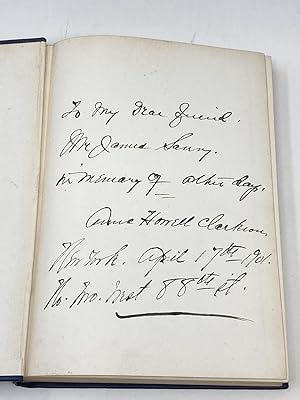 To My Dear friend.
Mr James
in memory of other days.
Anna Howell Clarkson
New York. April 17th 1901.
No. West 88th St.